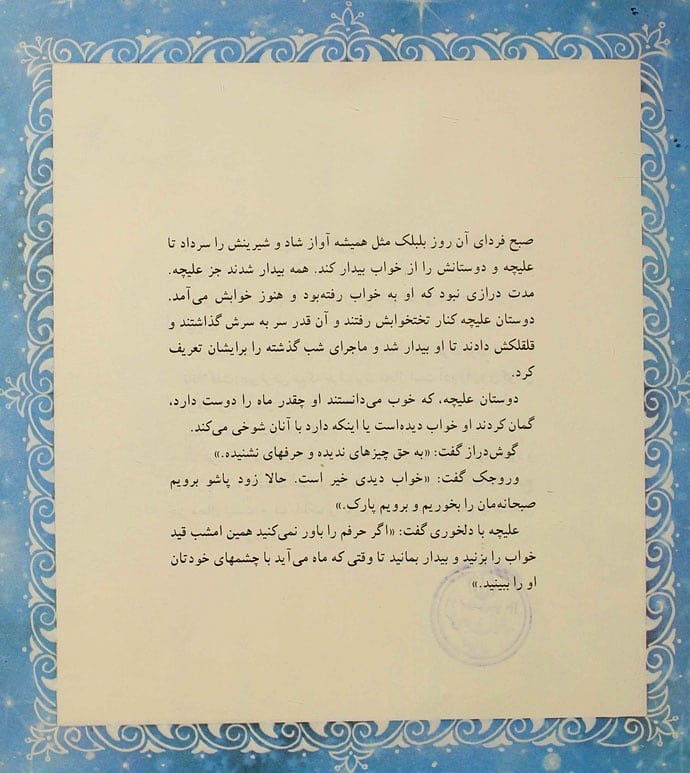 صبح فردای آن روز بلبلک مثل همیشه آواز شاد و شیرینش را سرداد تا
علیچه و دوستانش را از خواب بیدار کند. همه بیدار شدند جز علیچه.
مدت درازی نبود که او به خواب رفته‌بود و هنوز خوابش می‌آمد.
دوستان علیچه کنار تختخوابش رفتند و آن قدر سر به سرش گذاشتند و
قلقلکش دادند تا او بیدار شد و ماجرای شب گذشته را برایشان تعریف
کرد.
دوستان علیچه، که خوب می‌دانستند او چقدر ماه را دوست دارد،
گمان کردند او خواب دیده‌است یا اینکه دارد با آنان شوخی می‌کند.
گوش‌دراز گفت: «به حق چیزهای ندیده و حرفهای نشنیده.»
وروجک گفت: «خواب دیدی خیر است. حالا زود پاشو برویم
صبحانه‌مان را بخوریم و برویم پارک.»
علیچه با دلخوری گفت: «اگر حرفم را باور نمی‌کنید همین امشب قید
خواب را بزنید و بیدار بمانید تا وقتی که ماه می‌آید با چشمهای خودتان
او را ببینید.»